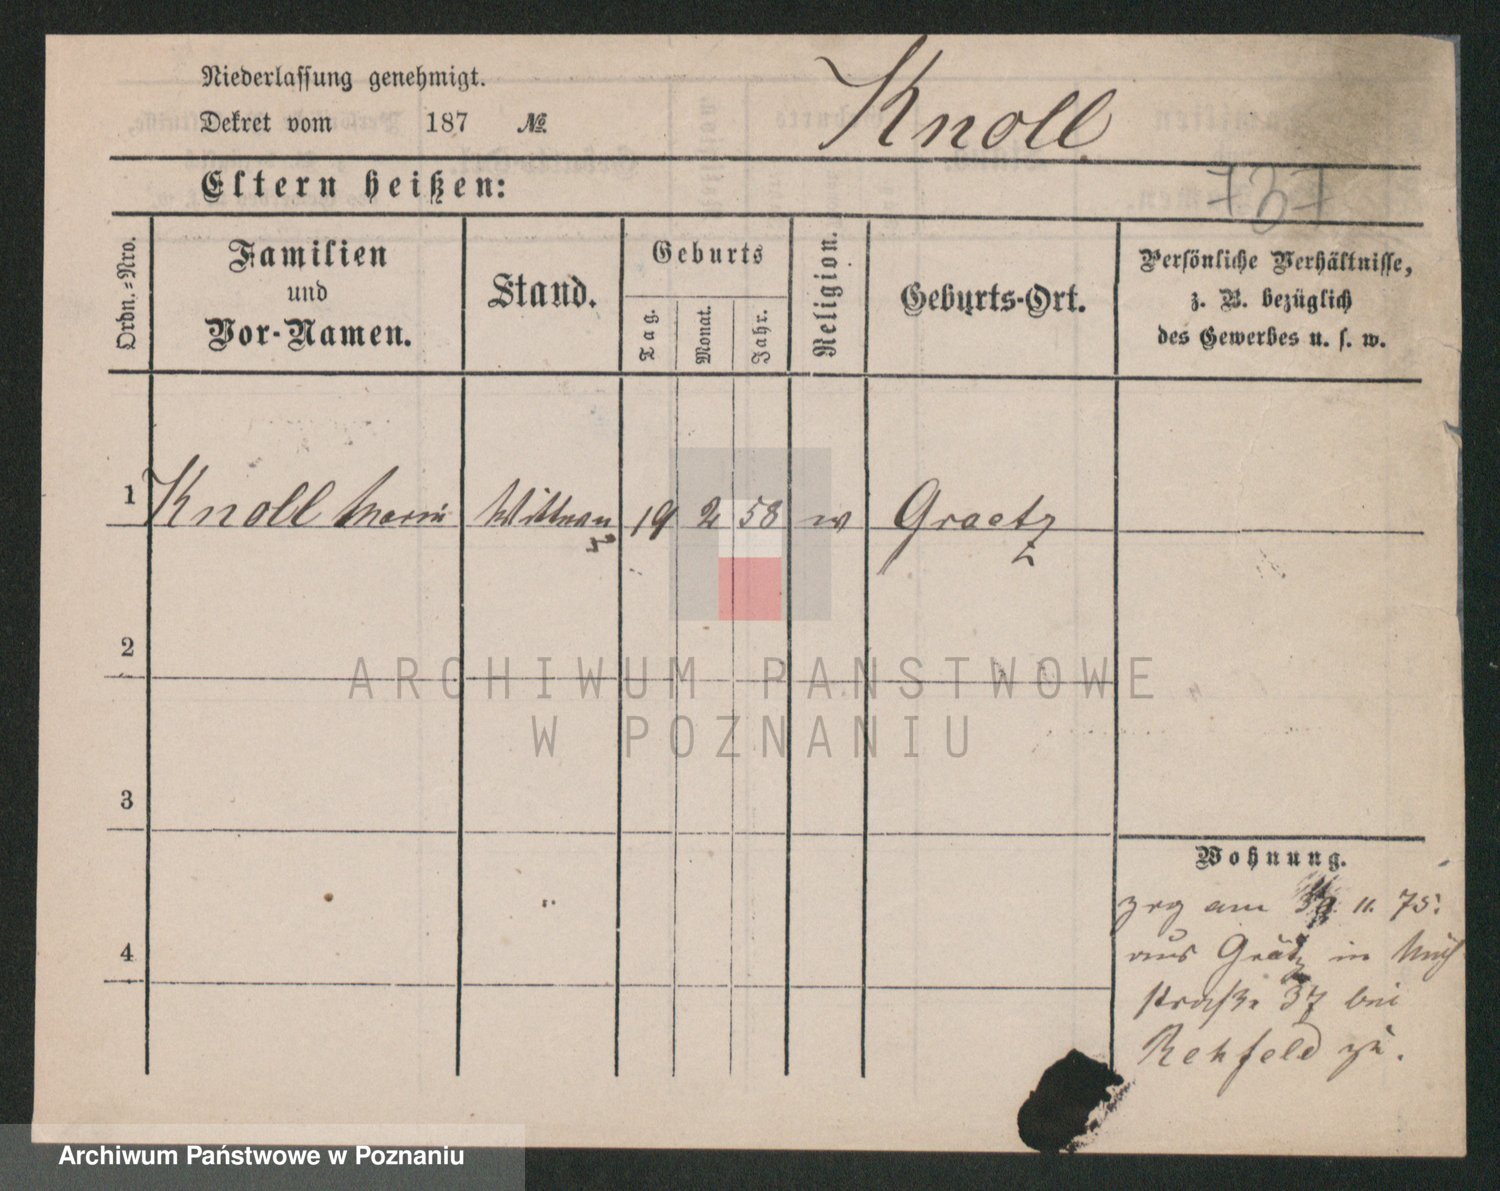 Niederlassung genehmigt.
Dekret vom 187 №
Knoll
Eltern heißen:
737
Ordn.=Nro.
Familien
und
Vor-Namen.
Stand.
Geburts
Tag.
Monat.
Jahr.
Religion.
Geburts-Ort.
Persönliche Verhältnisse,
z. B. bezüglich
des Gewerbes u. s. w.
1 Knoll Maria 19 2 58 Graetz
2
3
4
Wohnung.
zog am 11. 75.
aus Grätz in
straße 37 bei
Rehfeld zu.
ARCHIWUM PAŃSTWOWE
W POZNANIU
Archiwum Państwowe w Poznaniu